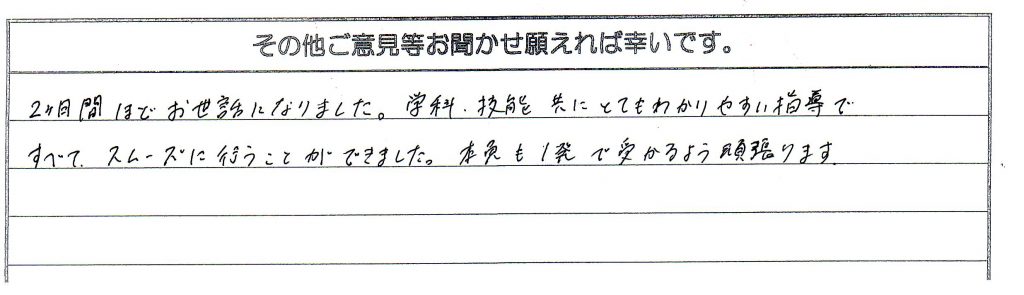 その他ご意見等お聞かせ願えれば幸いです。
2ヶ月間ほどお世話になりました。学科・技能共にとてもわかりやすい指導で
すべて、スムーズに行うことができました。本免も1発で受かるよう頑張ります。